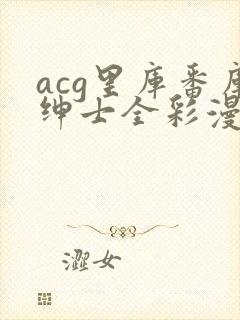 acg里库番库
绅士全彩漫
澀女